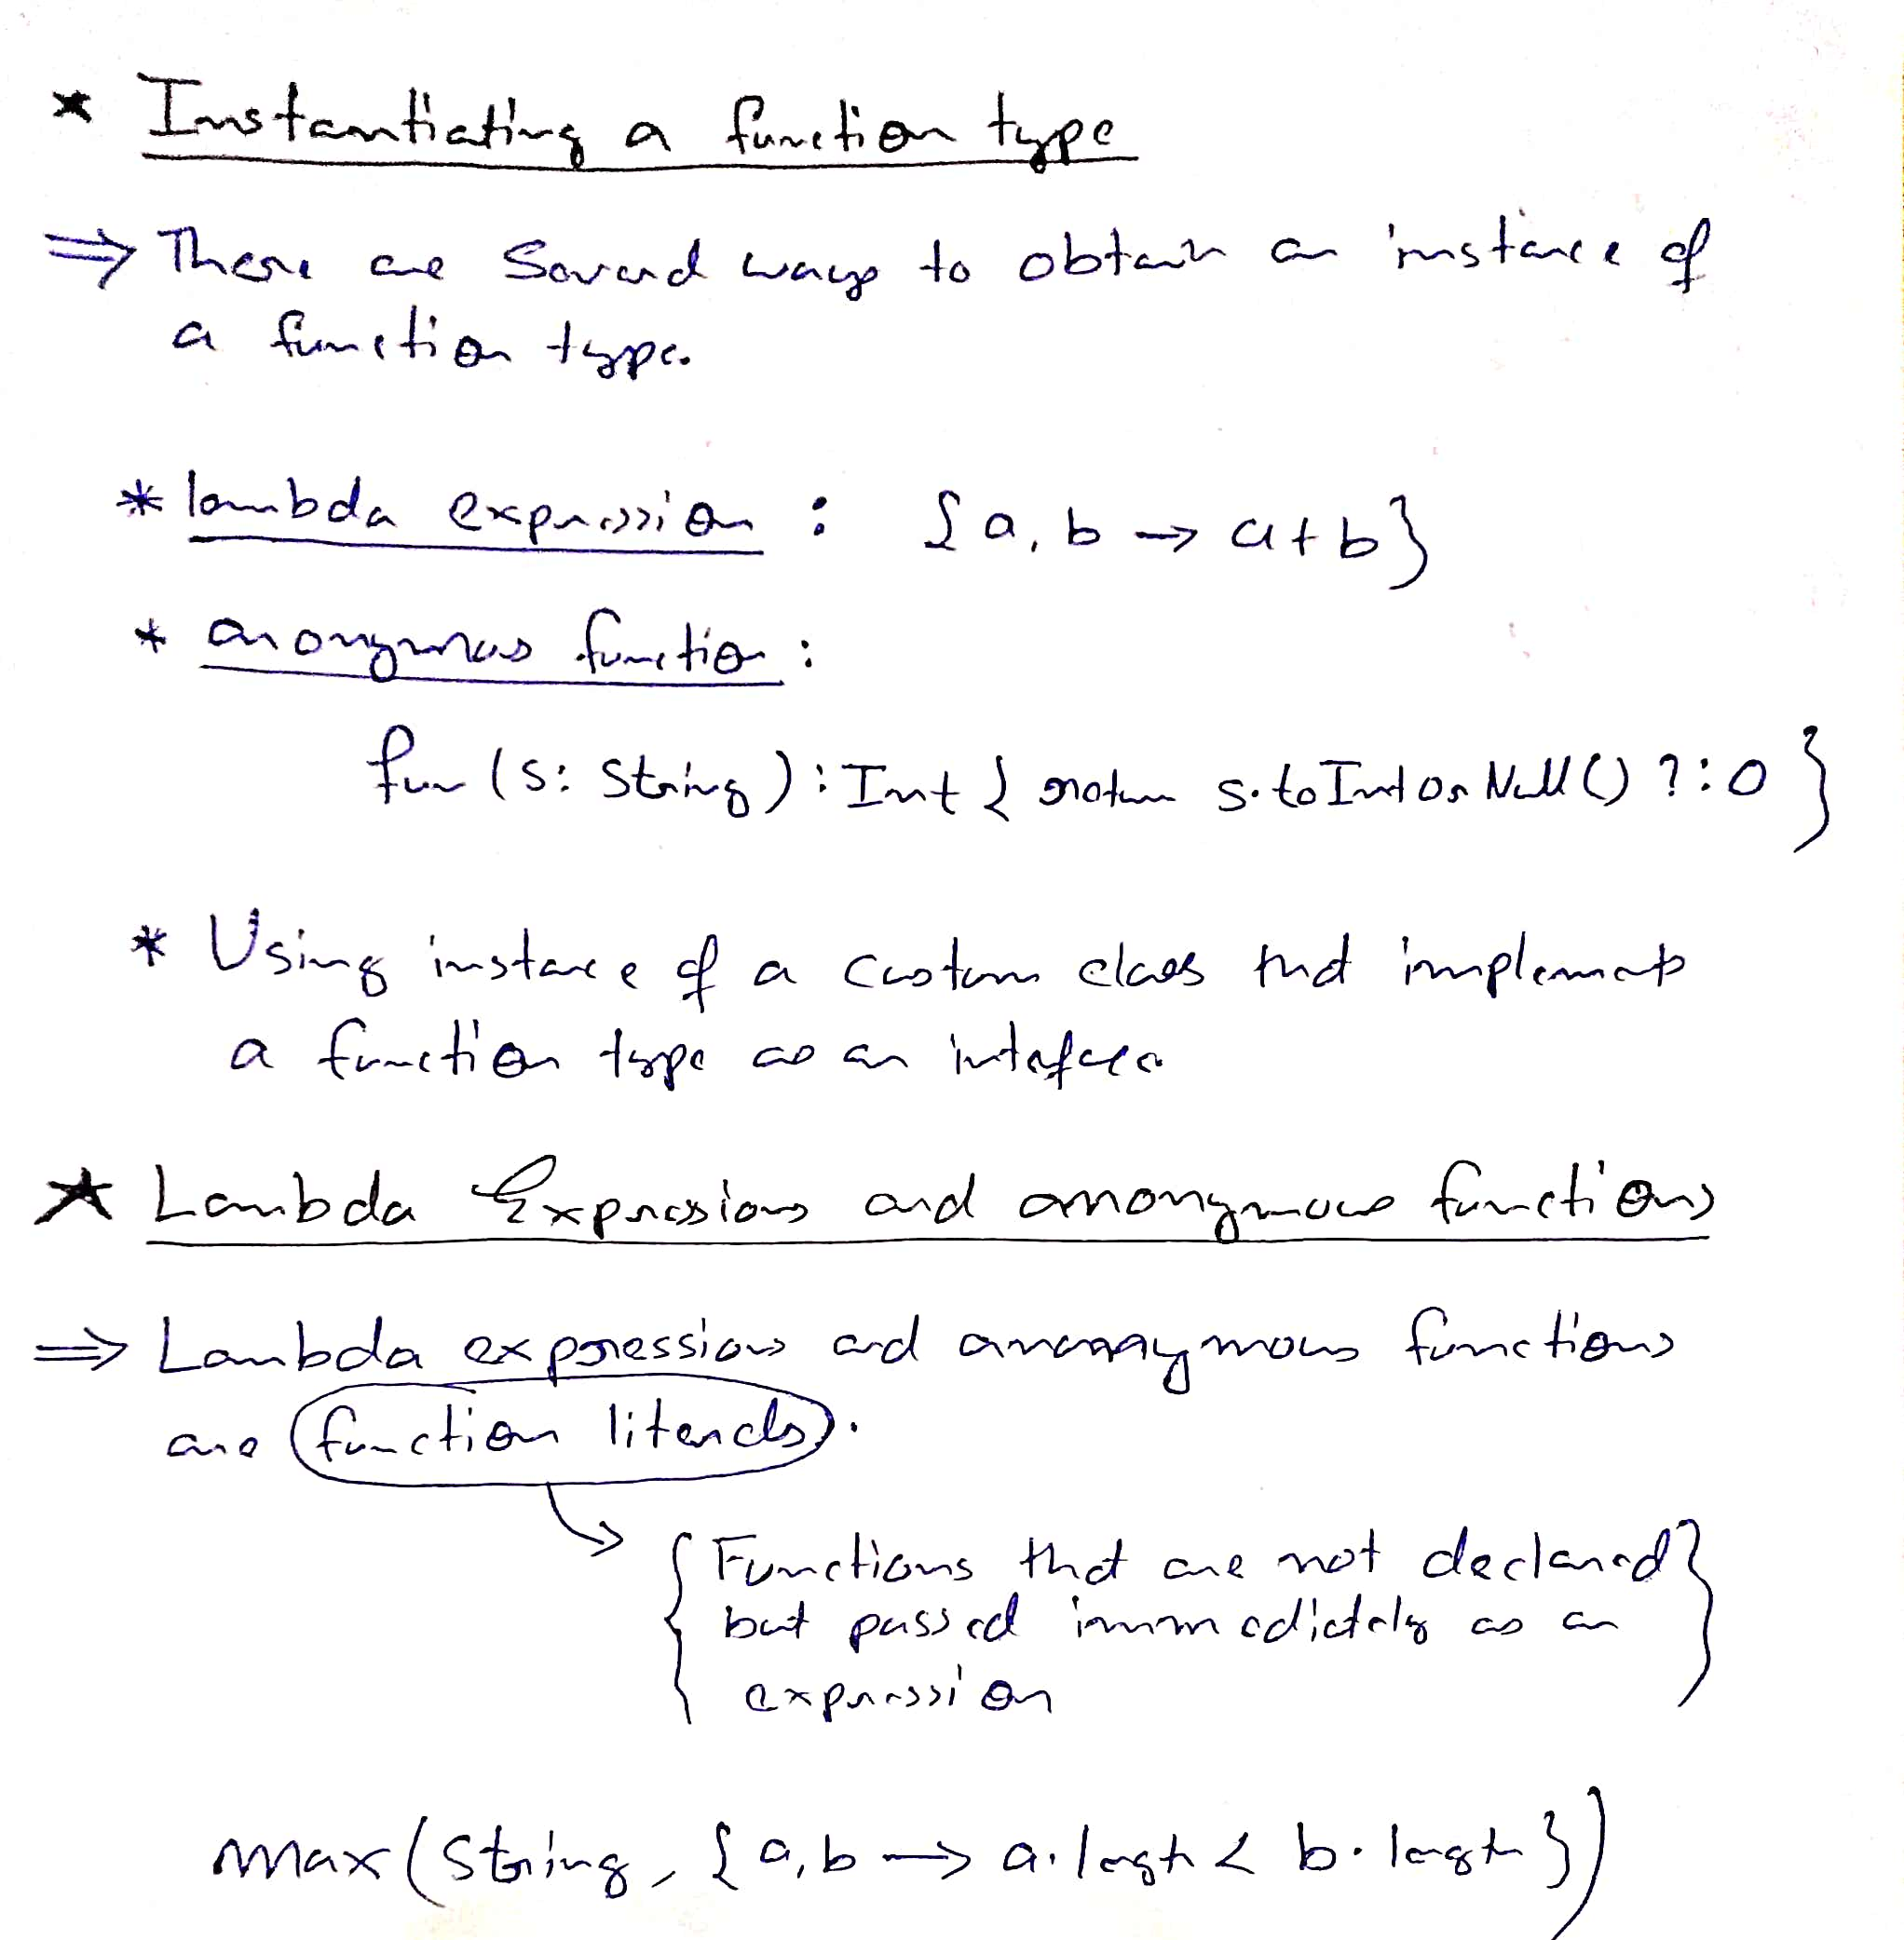 * Instantiating a function type
⇒ There are several ways to obtain an instance of
a function type.
* lambda expression : {a, b → a+b}
* anonymous function :
fun (s: String) : Int { return s.toIntOrNull() ?: 0 }
* Using instance of a custom class that implements
a function type as an interface
★ Lambda Expressions and anonymous functions
⇒ Lambda expressions and anonymous functions
are function literals.
→ { Functions that are not declared }
but passed immediately as an
expression
max(String, {a, b → a.length < b.length})